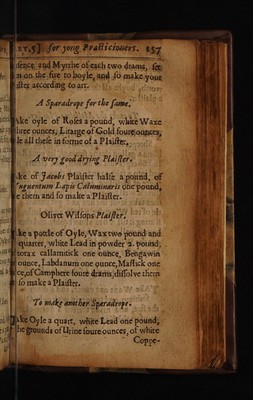 for yong Practicioners. 157
and Myrrhe of each two drams, set
on the fire to boyle, and so make your
according to art.
A Sparadrope for the same.
oyle of Roses a pound, white Waxe
three ounces, Litarge of Gold foure ounces,
all these in forme of a Plaister.
A very good drying Plaister.
of Jacobs Plaister halfe a pound, of
Lapis Caluminaris one pound,
them and so make a Plaister.
Oliver Wilsons Plaister.
a pottle of Oyle, Wax two pound and
quarter, white Lead in powder 2. pound,
callamitick one ounce, Bengawin
ounce, Labdanum one ounce, Mastick one
of Camphere foure drams, dissolve them
so make a Plaister.
To make another Sparadrope.
Oyle a quart, white Lead one pound,
the grounds of Urine foure ounces, of white
Coppe-